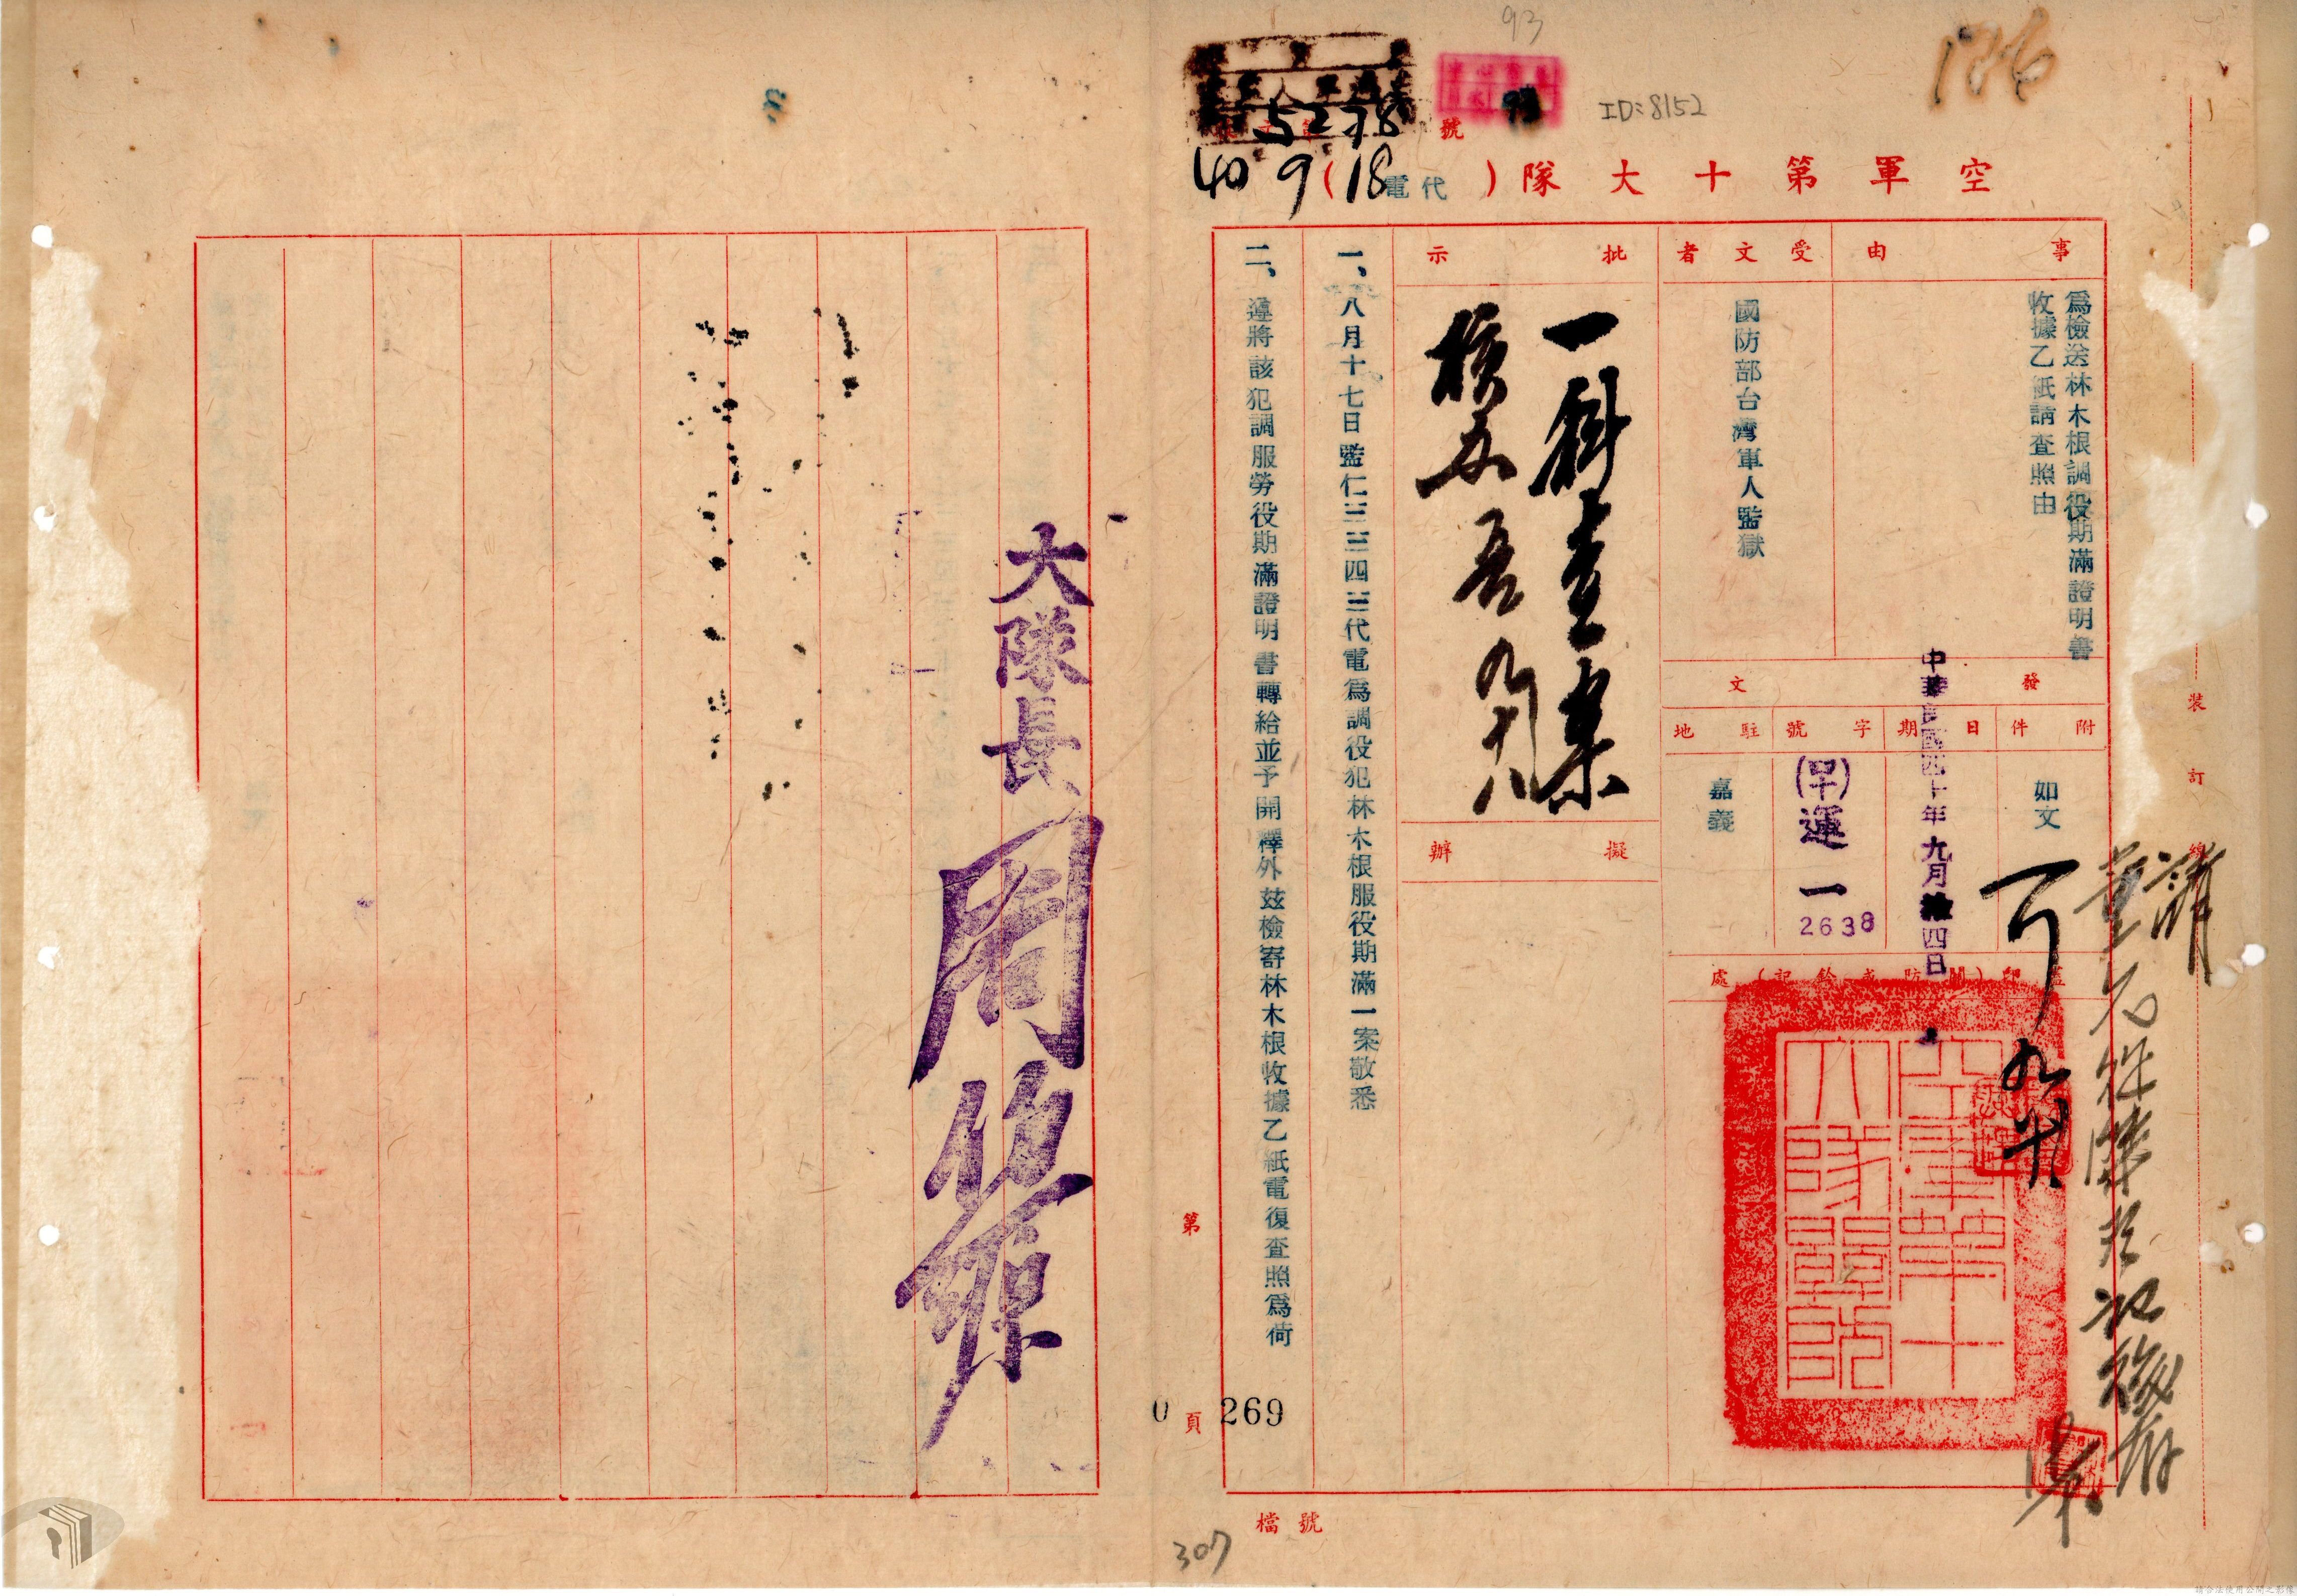 93
126
5278
號
ID:8152
40 9 18
空軍第十大隊（代電）
事由
為檢送林木根調役期滿證明書
收據乙紙請查照由
受文者
國防部台灣軍人監獄
批示
一科查案
核办
九十八
擬辦
發文
附件
如文
日期
中華民國四十年九月拾四日
字號
(早)運一
2638
駐地
嘉義
蓋印（關防或鈐記）處
空軍第十大隊關防
一、八月十七日監仁三三四三代電為調役犯林木根服役期滿一案敬悉
二、遵將該犯調服勞役期滿證明書轉給並予開釋外茲檢寄林木根收據乙紙電復查照為荷
大隊長
裝訂線
請
可
第
頁
0 269
檔號
307
請合法使用公開之影像